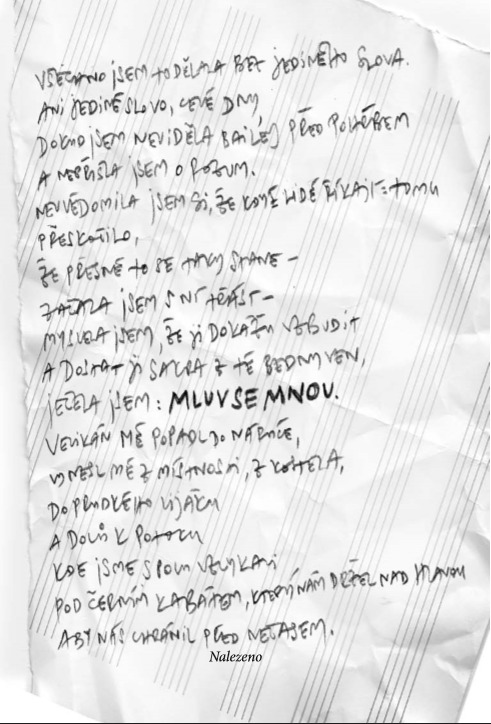 VŠECHNO JSEM TO DĚLALA BEZ JEDINÉHO SLOVA.
ANI JEDINÉ SLOVO, CELÉ DNY,
DOKUD JSEM NEVIDĚLA BAILEY PŘED POHŘBEM
A NEPŘIŠLA JSEM O ROZUM.
NEUVĚDOMILA JSEM SI, ŽE KDYŽ LIDÉ ŘÍKAJÍ: TOMU
PŘESKOČILO,
ŽE PŘESNĚ TO SE TAKY STANE –
ZAČALA JSEM S NÍ TŘÁST –
MYSLELA JSEM, ŽE JI DOKÁŽU VZBUDIT
A DOSTAT JI SAKRA Z TÉ BEDNY VEN,
JEČELA JSEM: MLUV SE MNOU.
VELIKÁN MĚ POPADL DO NÁRUČE,
VYNESL MĚ Z MÍSTNOSTI, Z KOSTELA,
DO PRUDKÉHO LIJÁKU
A DOLŮ K POTOKU
KDE JSME SPOLU VZLYKALI
POD ČERNÝM KABÁTEM, KTERÝ NÁM DRŽEL NAD HLAVOU
ABY NÁS CHRÁNIL PŘED NEČASEM.
Nalezeno